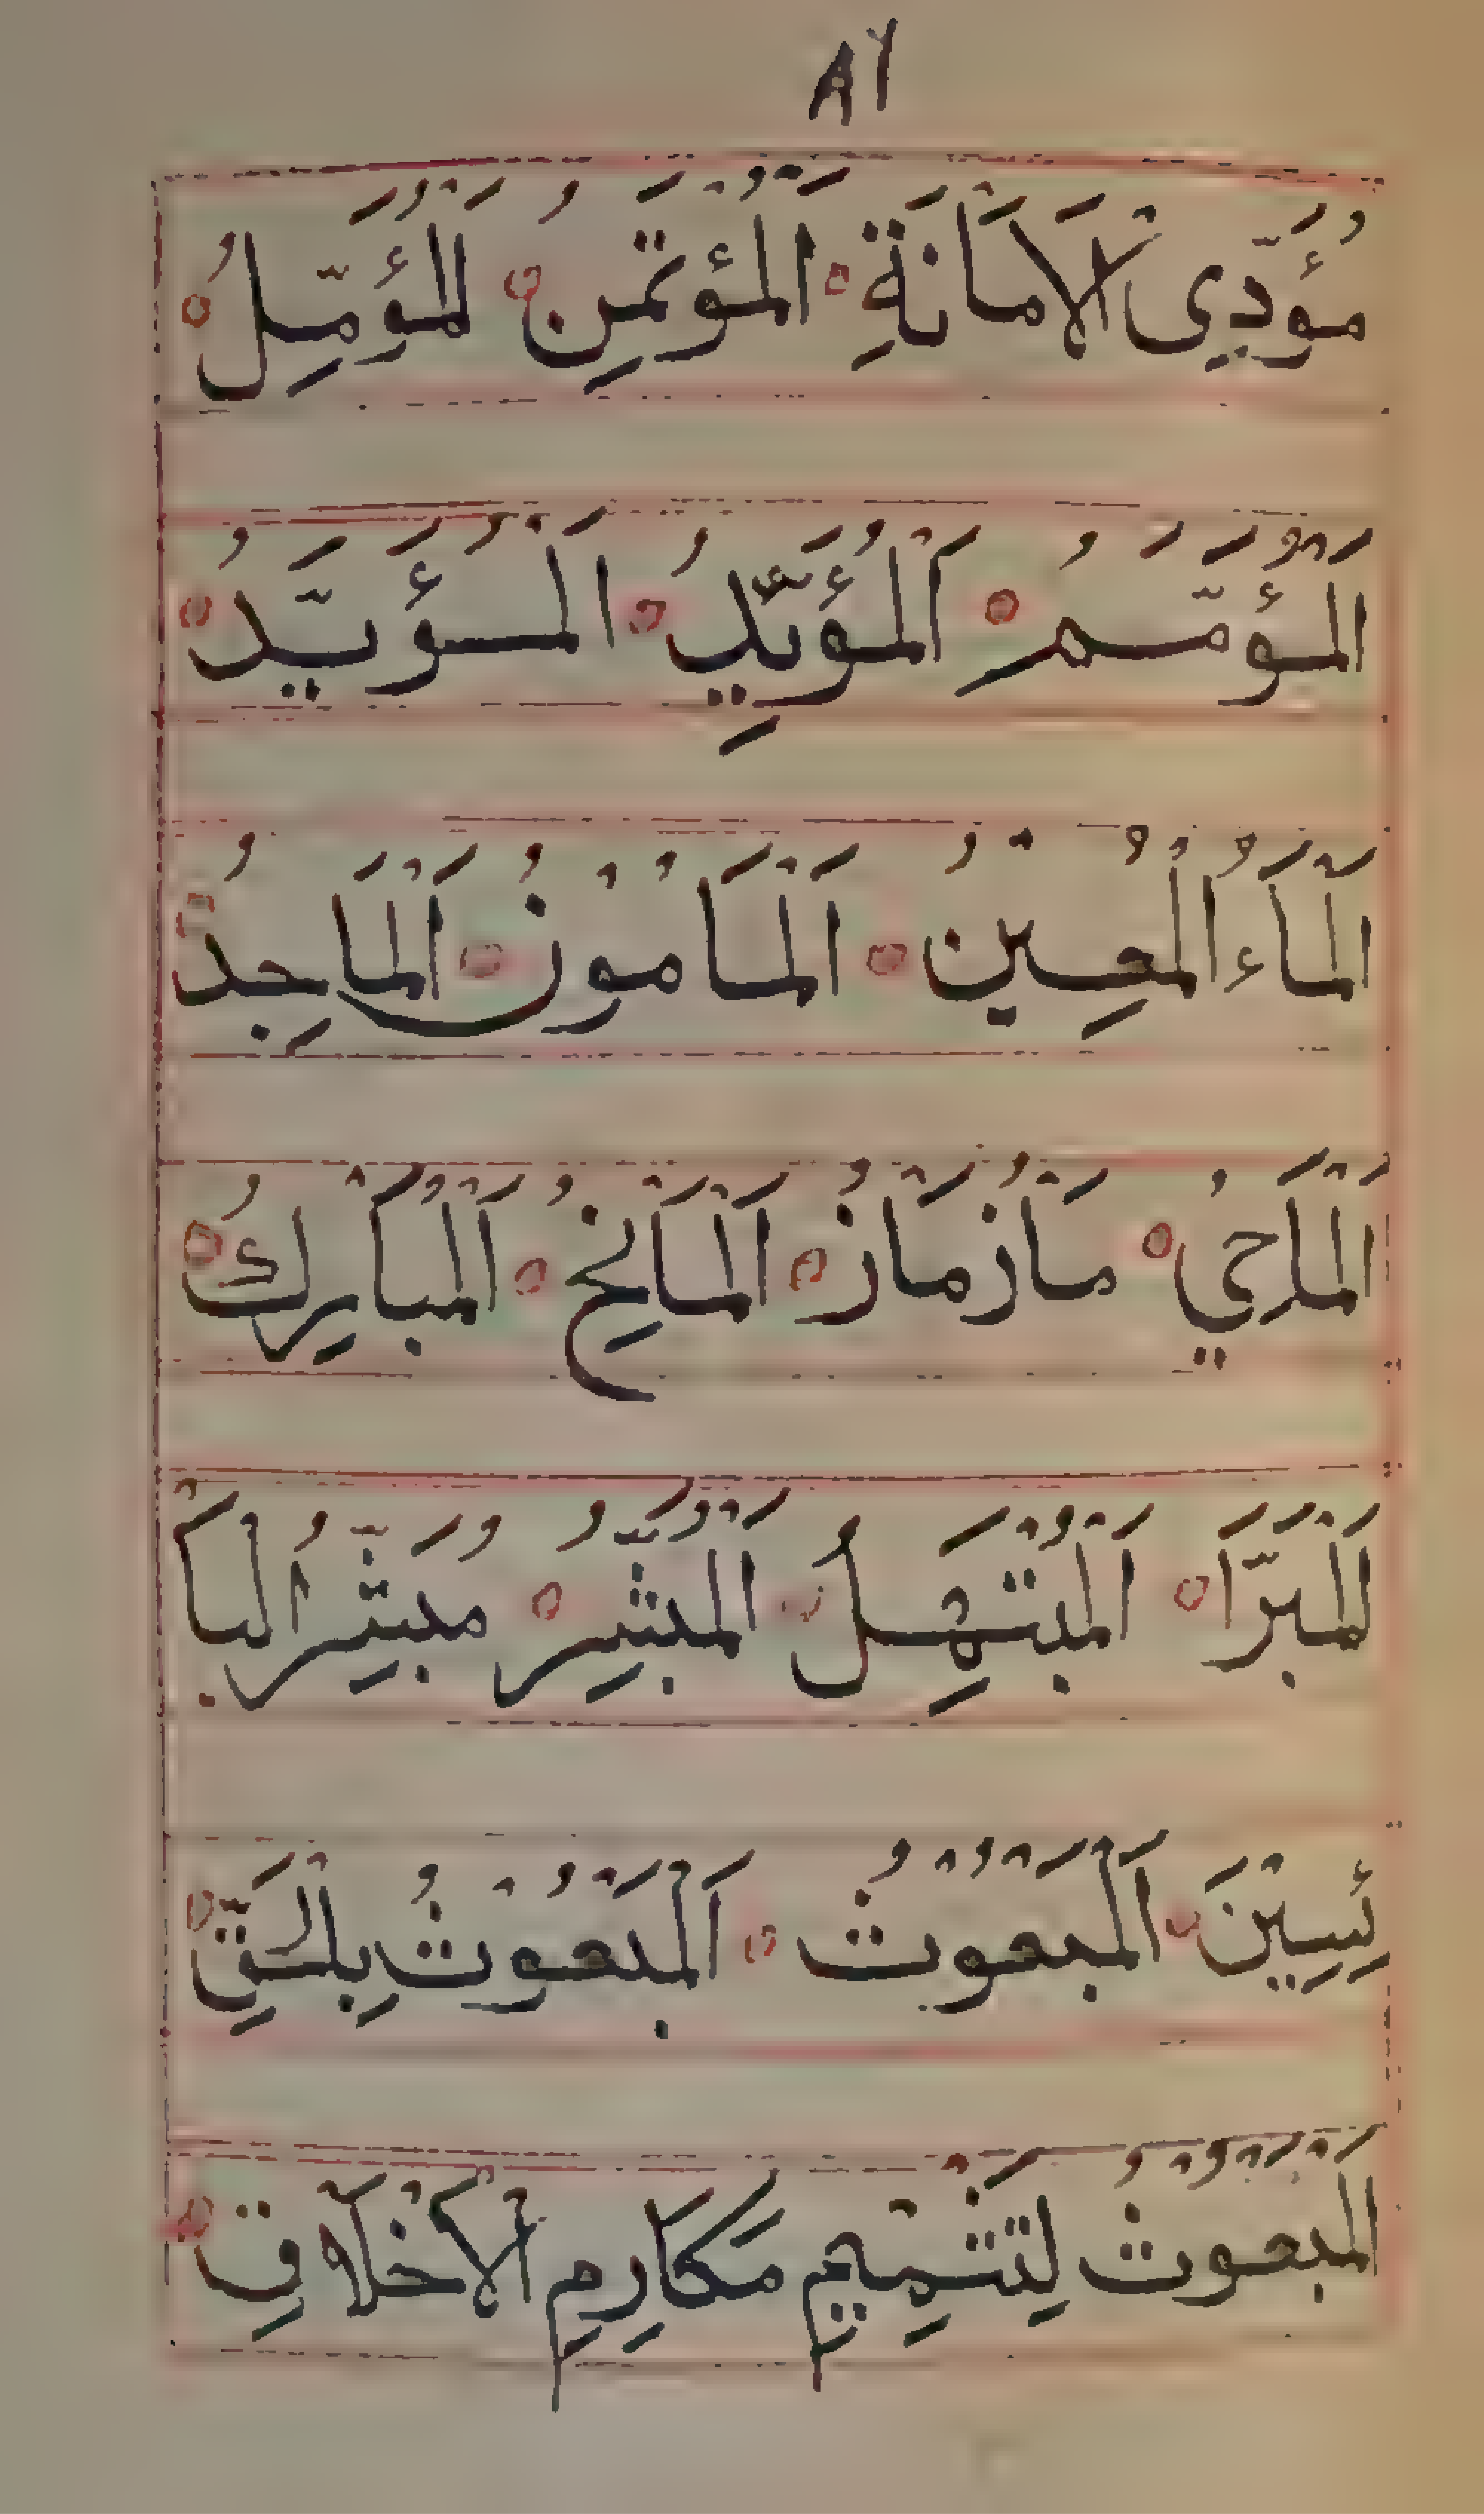 ٨٦
مُؤَدِّى الْأَمَانَةِ الْمُؤْتَمِنُ الْمُؤَمِّلُ
الْمُؤَمَّمُ اَلْمُؤَيِّدُ اَلْمُؤَيَّدُ
اَلْمَاءُ الْمُعِيْنُ اَلْمَأمُوْنُ اَلْمَاجِدُ
اَلْمَاحِيُ مَاْذُمَاْذُ اَلْمَانِحُ اَلْمُبَارِكُ
اَلْمُبَرَّا اَلْمُبْتَهِلُ اَلْمُبَشِّرُ مُبَشِّرُ الْبَا
ئِسِيْنَ اَلْمَبْعُوْثُ اَلْمَبْعُوْثُ بِالْحَقِّ
اَلْمَبْعُوْثُ لِتَتْمِيْمِ مَكَارِمِ الْأَخْلَاقِ